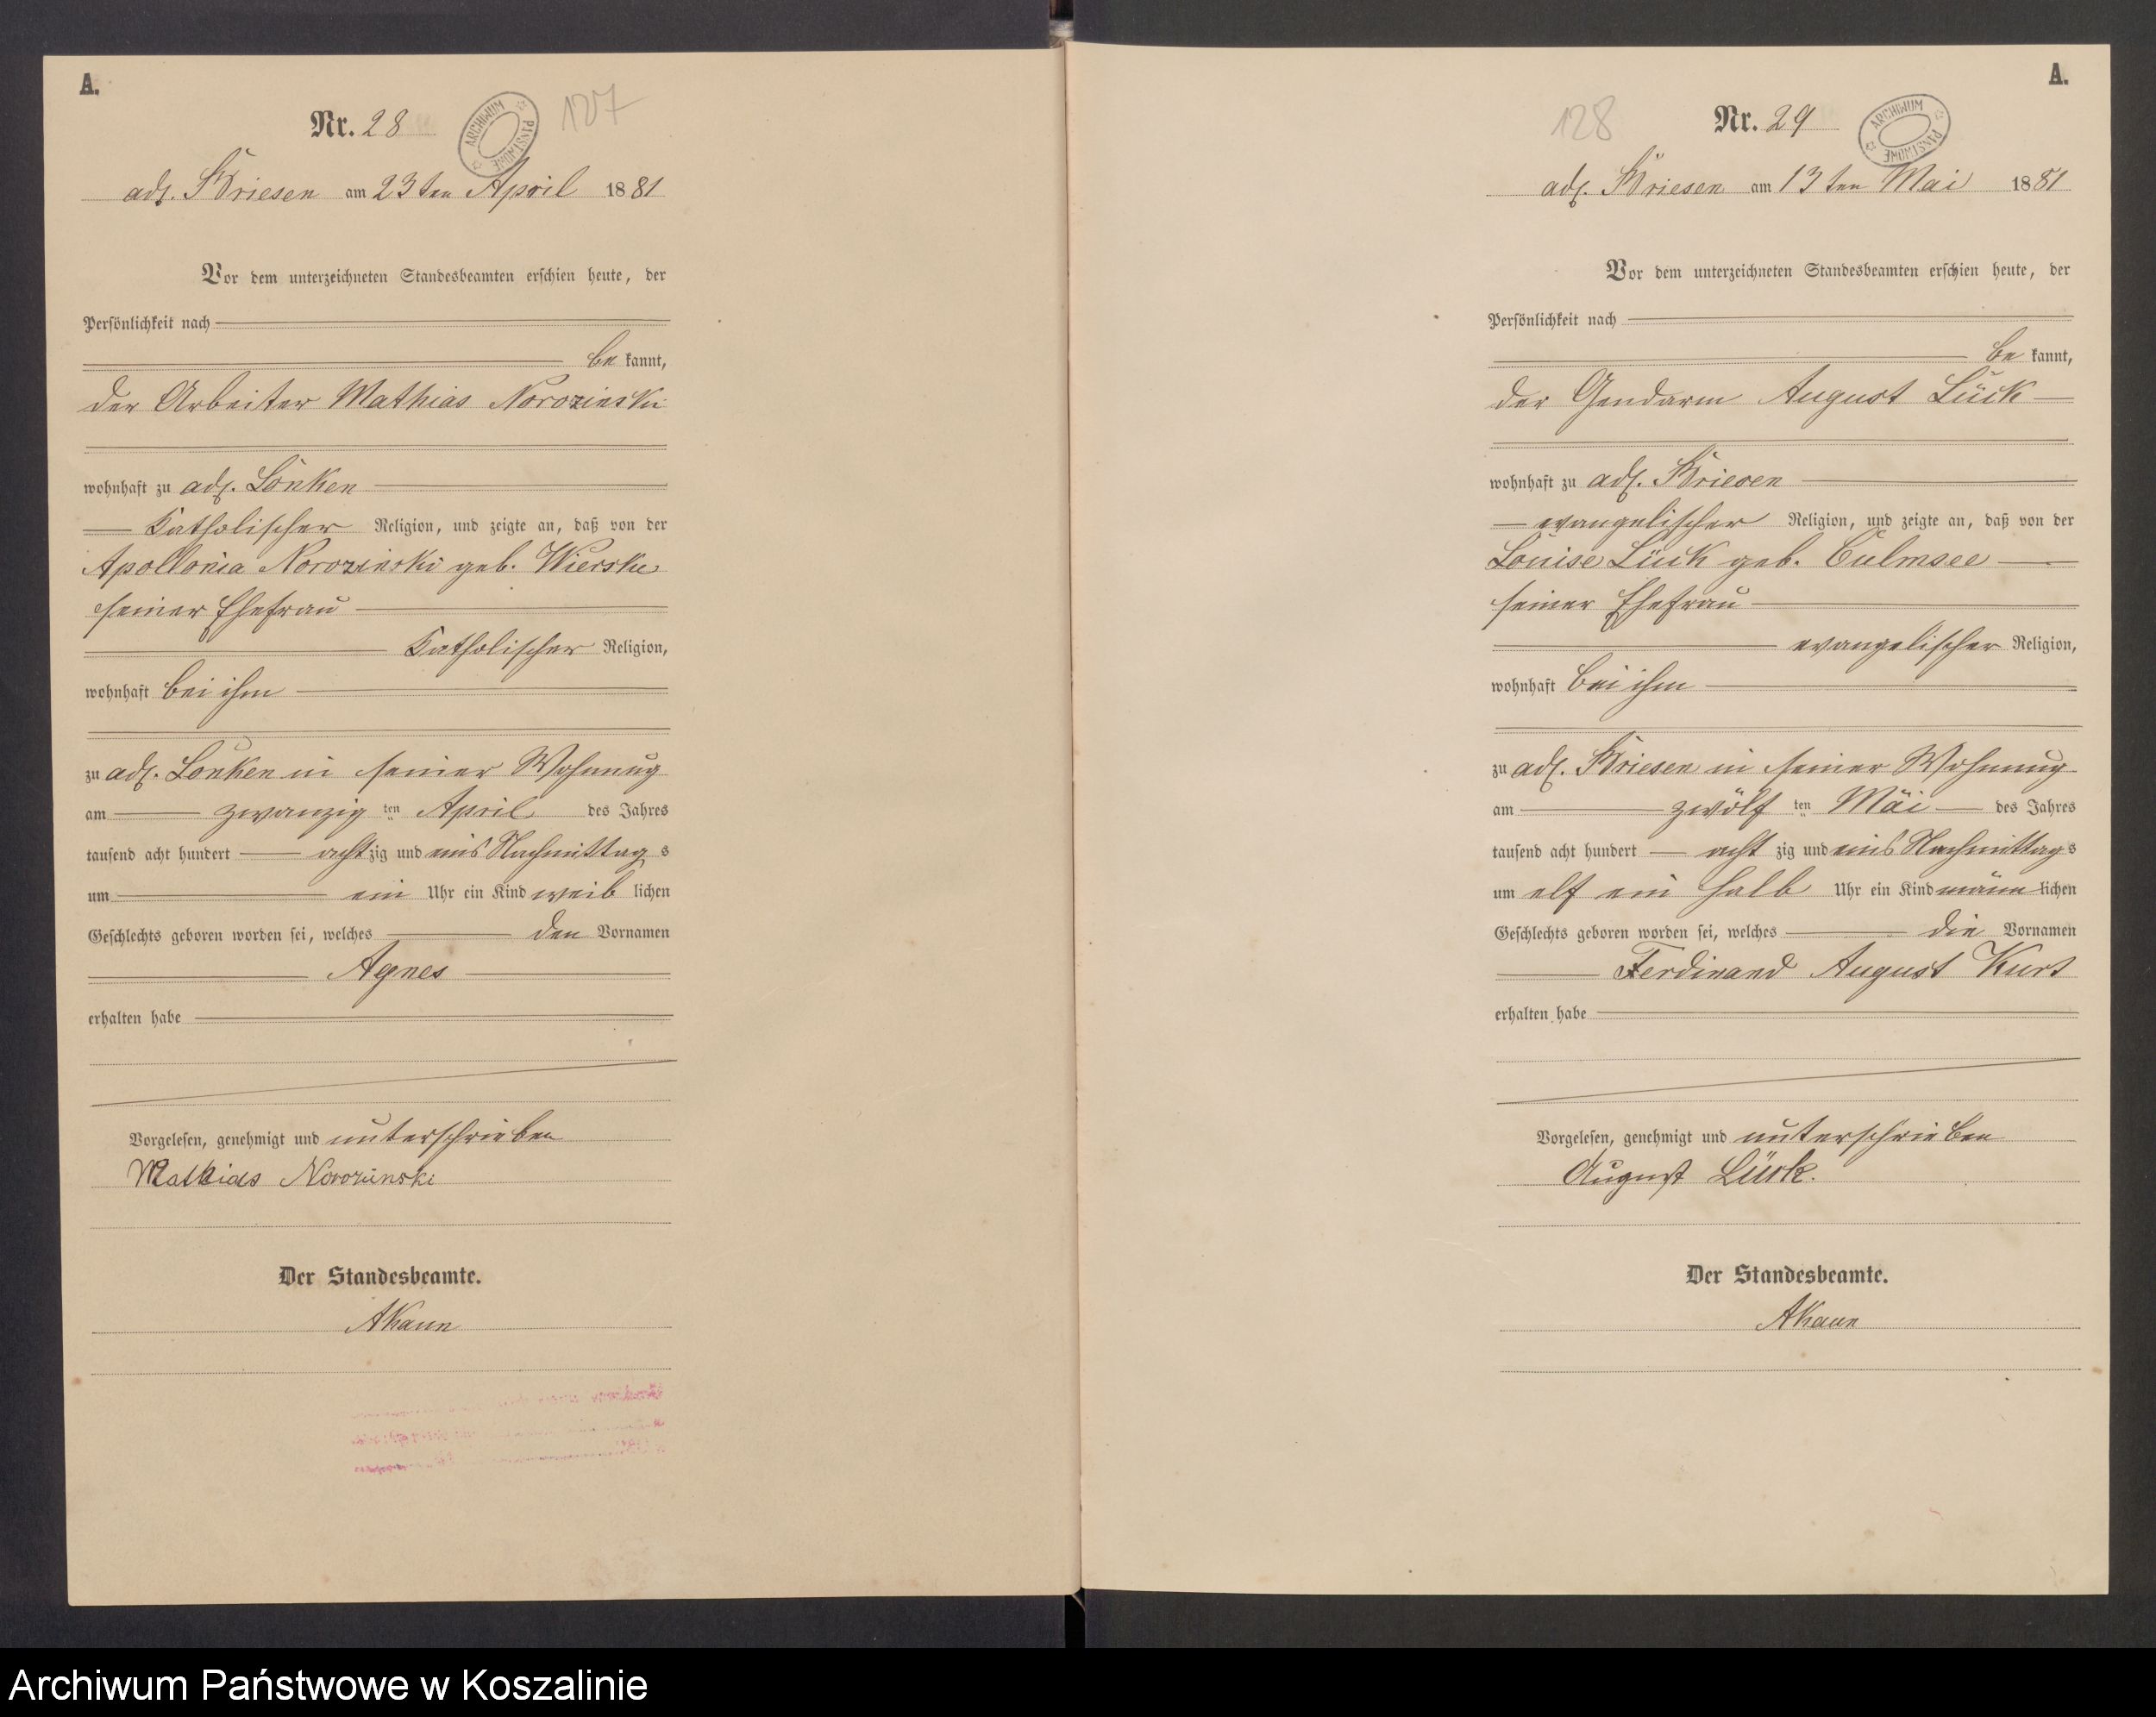 A.
Nr. 28
127
ARCHIWUM PAŃSTWOWE
adl. Briesen am 23ten April 1881
Vor dem unterzeichneten Standesbeamten erschien heute, der
Persönlichkeit nach
be kannt,
der Arbeiter Mathias Norozinski
wohnhaft zu adl. Lonken
Katholischer Religion, und zeigte an, daß von der
Apollonia Norozinski geb. Wierske
seiner Ehefrau
Katholischer Religion,
wohnhaft bei ihm
zu adl. Lonken in seiner Wohnung
am zwanzig ten April des Jahres
tausend acht hundert achtzig und eins Nachmittags
um ein Uhr ein Kind weib lichen
Geschlechts geboren worden sei, welches den Vornamen
Agnes
erhalten habe
Vorgelesen, genehmigt und unterschrieben
Mathias Norozinski
Der Standesbeamte.
AKaun
A.
128
Nr. 29
ARCHIWUM PAŃSTWOWE
adl. Briesen am 13ten Mai 1881
Vor dem unterzeichneten Standesbeamten erschien heute, der
Persönlichkeit nach
be kannt,
der Gendarm August Lück
wohnhaft zu adl. Briesen
evangelischer Religion, und zeigte an, daß von der
Louise Lück geb. Culmsee
seiner Ehefrau
evangelischer Religion,
wohnhaft bei ihm
zu adl. Briesen in seiner Wohnung
am zwölf ten Mai des Jahres
tausend acht hundert acht zig und eins Nachmittags
um elf ein halb Uhr ein Kind männ lichen
Geschlechts geboren worden sei, welches die Vornamen
Ferdinand August Kurt
erhalten habe
Vorgelesen, genehmigt und unterschrieben
August Lück.
Der Standesbeamte.
AKaun
Archiwum Państwowe w Koszalinie